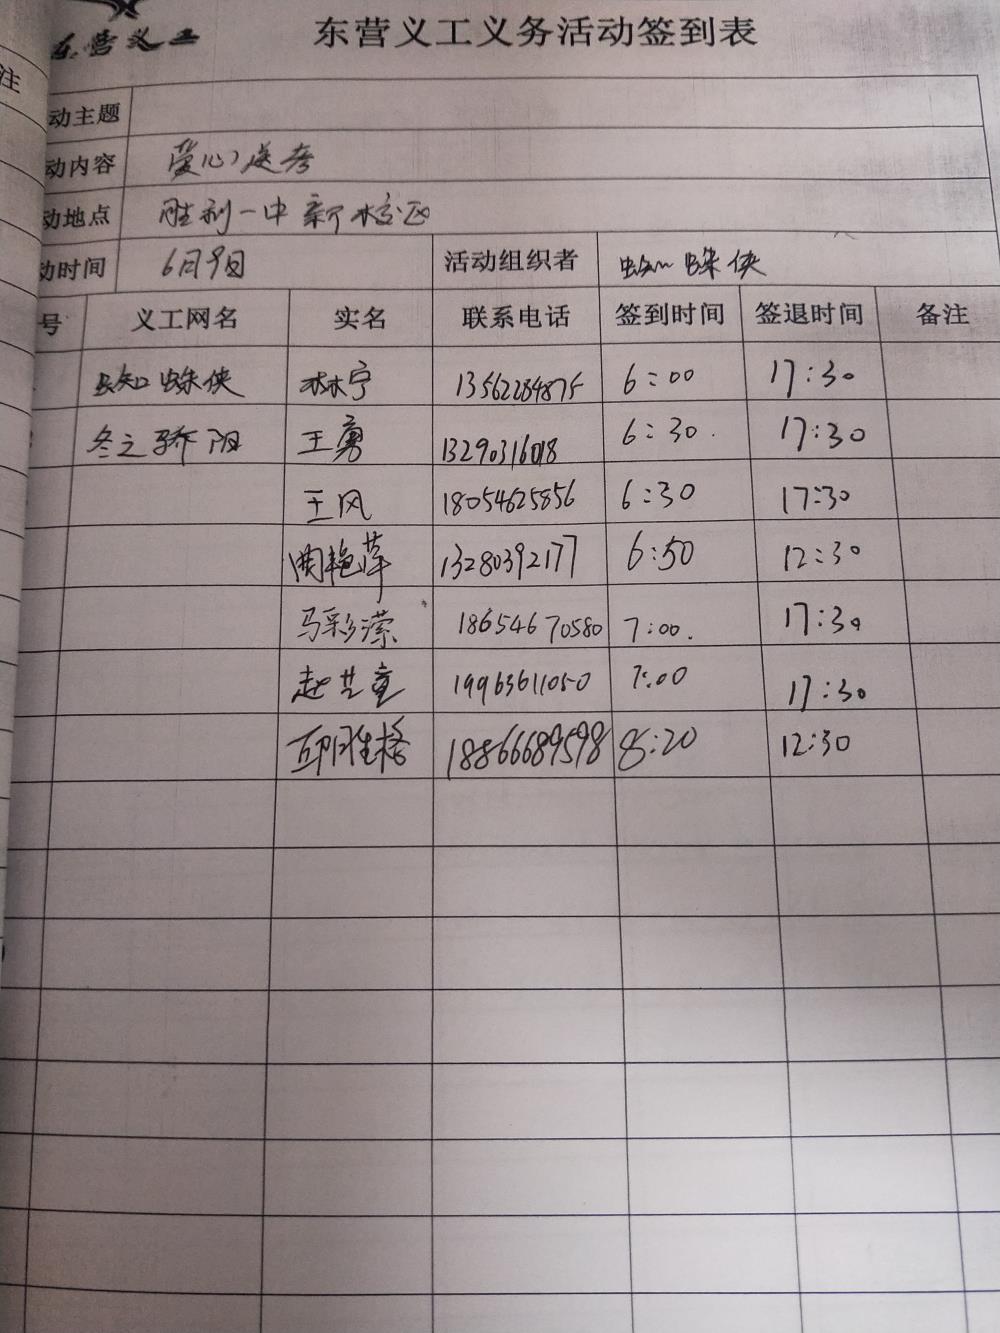 注
东营义工 东营义工义务活动签到表
动主题
动内容 爱心送考
动地点 胜利一中新校区
动时间 6月9日 活动组织者 蜘蛛侠
号 义工网名 实名 联系电话 签到时间 签退时间 备注
蜘蛛侠 林宁 13562284875 6:00 17:30
冬之骄阳 王勇 13290316018 6:30 17:30
王风 18054625856 6:30 17:30
周艳萍 13280392177 6:50 12:30
马彩滢 18654670580 7:00 17:30
赵艺童 19963611050 7:00 17:30
18866689598 8:20 12:30